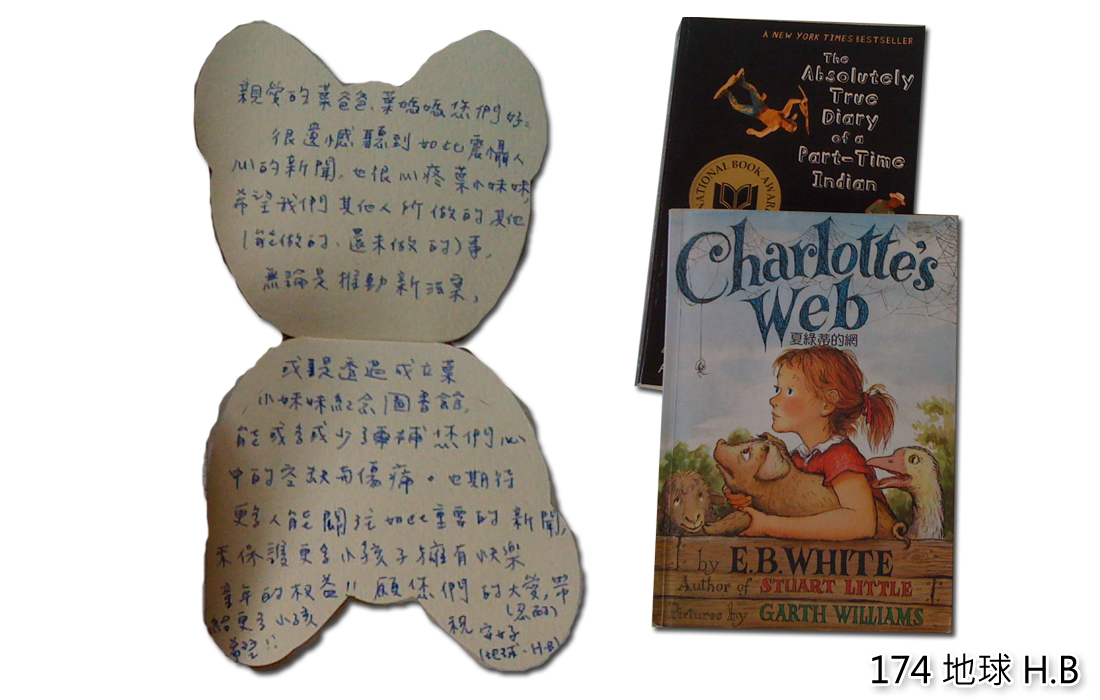 親愛的葉爸爸、葉媽媽您們好:
很遺憾聽到如此震懾人
心的新聞,也很心疼葉小妹妹,
希望我們其他人所做的其他
(能做的、還未做的)事,
無論是推動新法案,
或是透過成立葉
小妹妹紀念圖書館,
能或多或少了彌補您們心
中的空缺與傷痛。也期待
更多人能關注如此重要的新聞,
來保護更多小孩子擁有快樂
童年的权益!! 願您們的大愛,帶
給更多小孩
(恩的)
祝 安好
(地球·H.B)
A NEW YORK TIMES BESTSELLER
The
Absolutely
True
Diary
of a
Part-Time
Indian
NATIONAL BOOK AWAR
Charlotte's
Web
夏綠蒂的網
by E.B. WHITE
Author of STUART LITTLE
Pictures by GARTH WILLIAMS
174 地球 H.B